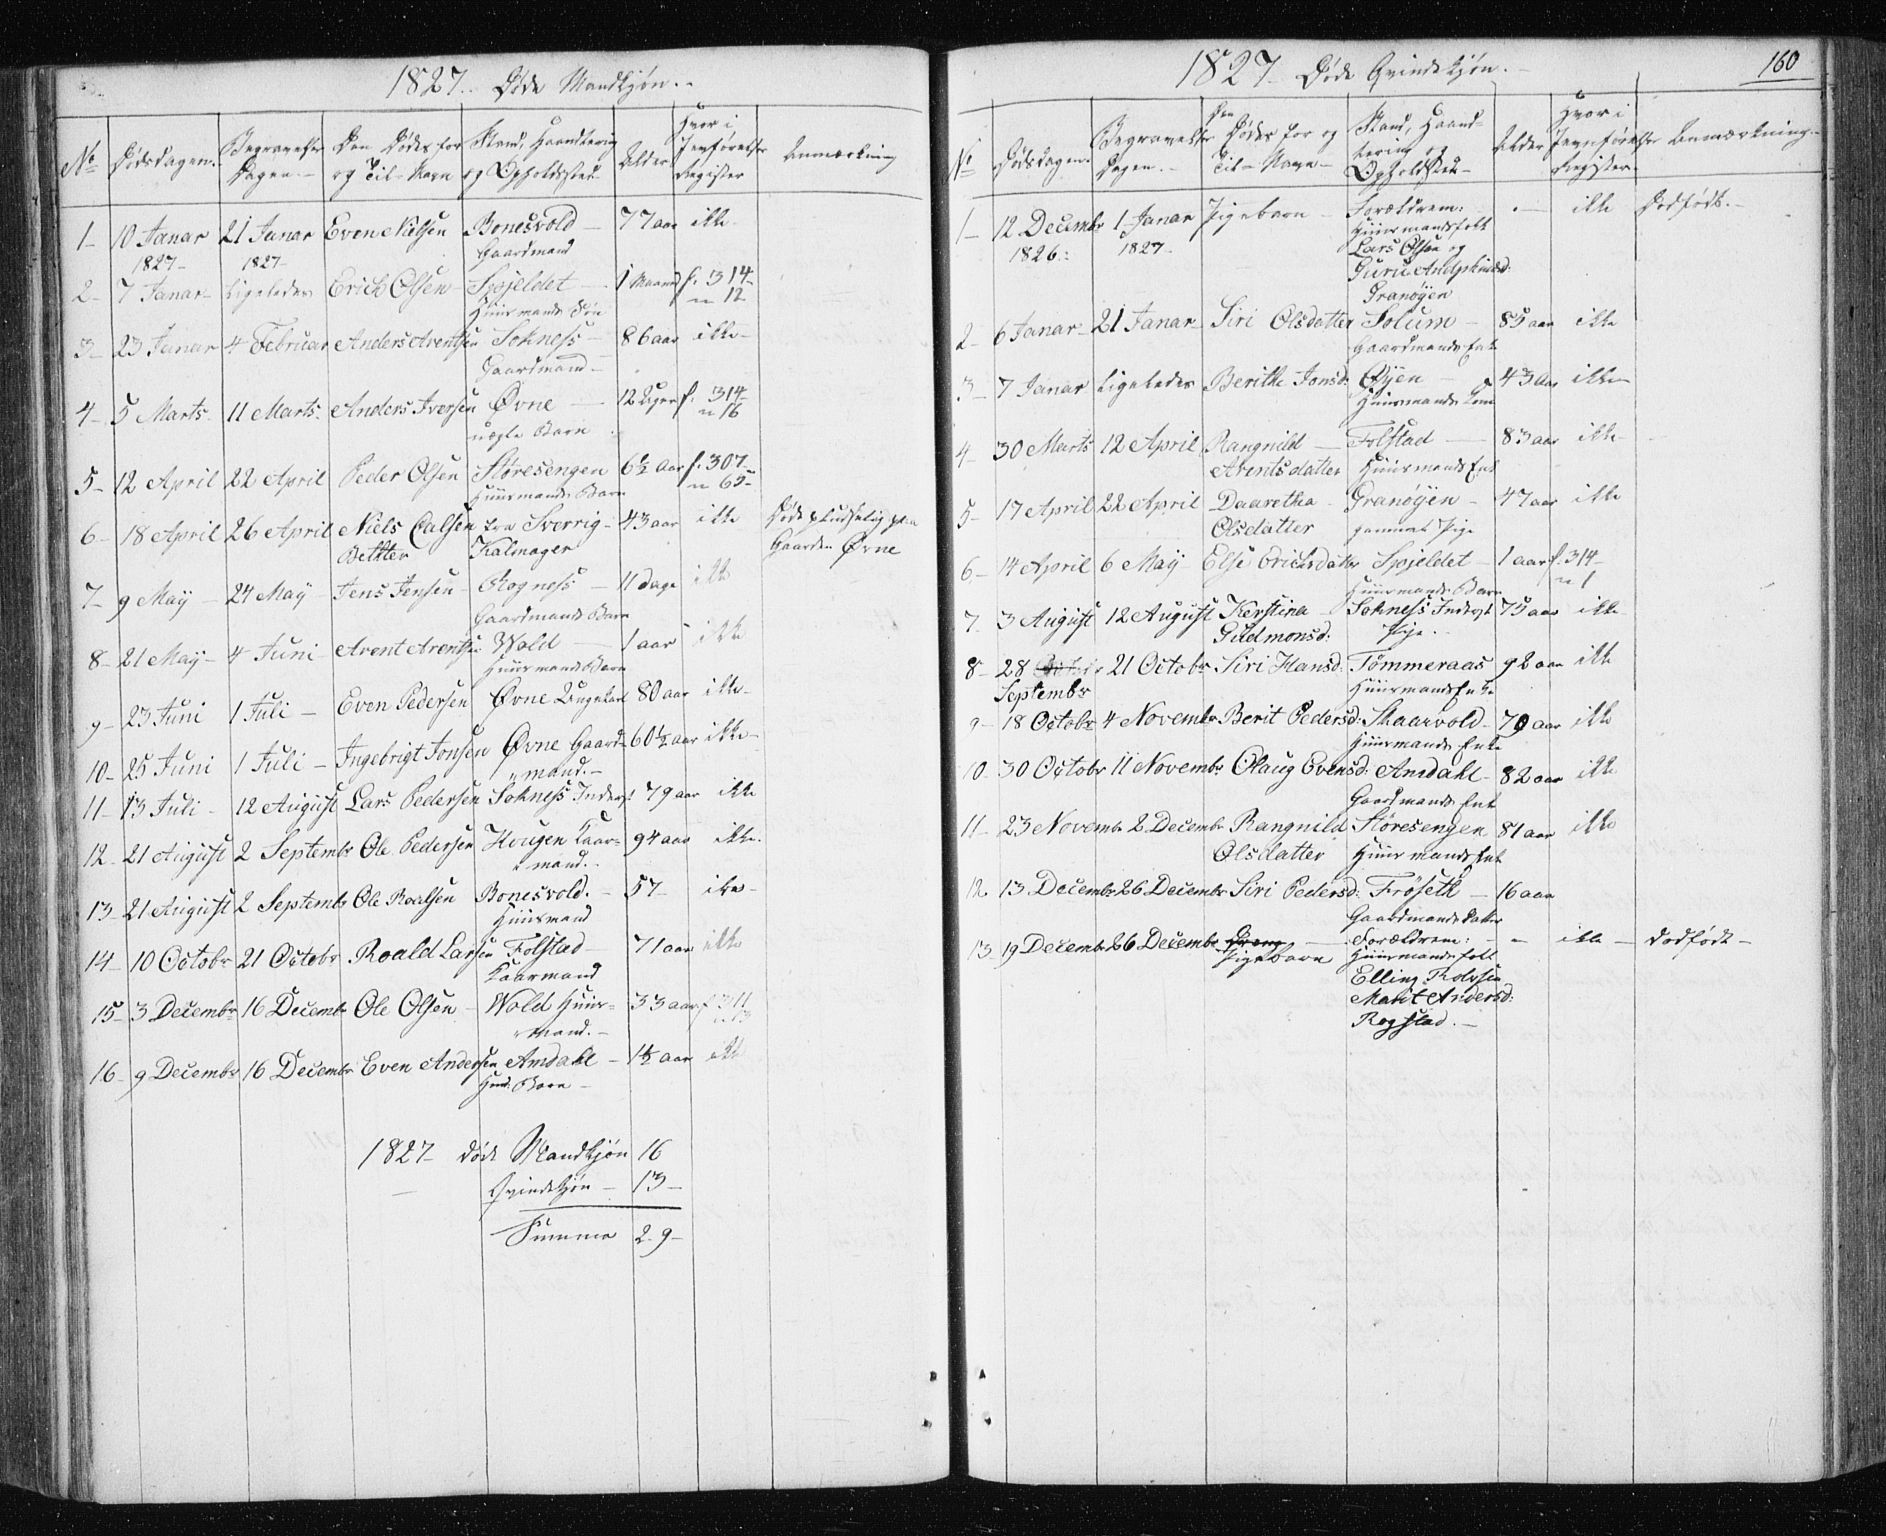 1827. Døde Mandkjøn.
No Dødsdagen. Begravelses Dagen. Den Dødes for og Til-Navn Stand, Haandtering og Opholdssted Alder Hvor i Jevnførelses Register Anmærkning
1 10 Janar 1827 21 Janar 1827 Even Nielsen Bonesvold Gaardmand 77 aar ikke
2 7 Janar Ligeledes Erich Olsen Spjeldet Huusmands Søn 1 Maaned f. 314 n 12
3 23 Janar 4 Februar Anders Arentsen Sokness Gaardmand 86 aar ikke
4 5 Marts 11 Marts Anders Iversen Øvne uægte Barn 12 Uger f. 314 n 16
5 12 April 22 April Peder Olsen Støresengen Huusmands Barn 6½ Aar f. 307 n 65
6 18 April 26 April Niels Calsen fra Sverrig Kalmager 43 aar ikke Døde pludselig paa Gaarden Øvne
7 9 May 24 May Jens Jensen Rogness Gaardmands Barn 11 dage ikke
8 21 May 4 Juni Arent Arentsen Wold Huusmands Barn 1 aar ikke
9 23 Juni 1 Juli Even Pedersen Øvne Ungekarl 80 aar ikke
10 25 Juni 1 Juli Ingebrigt Jonsen Øvne Gaardmand. 60½ aar ikke
11 13 Juli 12 August Lars Pedersen Sokness Inderst 79 aar ikke
12 21 August 2 Septembr Ole Pedersen Hougen Kaarmand. 94 aar ikke.
13 21 August 2 Septembr Ole Roalsen Bonesvold. Huusmand 57 ikke
14 10 Octobr 21 Octobr Roald Larsen Folstad Kaarmand 71 aar ikke
15 3 Decembr 16 Decembr Ole Olsen Wold Huusmand. 33 aar f 311
16 9 Decembr 16 Decembr Even Andersen Amdahl Huusm: Barn 1½ aar ikke
1827 døde Mandkjøn 16
Qvindekjøn 13
Summa 29
1827 Døde Qvindekjøn.
160
No Dødsdagen. Begravelses Dagen. Den Dødes for og Til-Navn Stand, Haandtering og Opholdsted Alder Hvor i Jevnførelses Register. Anmærkning.
1 12 Decembr 1826. 1 Janar 1827 Pigebarn Forældrene: Huusmandsfolk Lars Olsen og Guru Granøyen ikke Dødfødt.
2 6 Janar 21 Janar Siri Olsdatter Solum Gaardmands Enke 85 aar ikke
3 7 Janar Ligeledes Berithe Jonsd: Øyen Huusmands Kone 43 Aar ikke
4 30 Marts 12 April Rangnild Arentsdatter Folstad Huusmands Enk 83 aar ikke
5 17 April 22 April Daarethea Olsdatter Granøyen gammel Pige 47 aar ikke
6 14 April 6 May Else Erichsdatter Spjeldet Huusmands Barn 1 aar f. 314 n 1
7. 3 August 12 August Kerstina Gudmonsd: Sokness Inderst Pige. 75 aar ikke
8 28 Septembr 21 Octobr Siri Hansd: Tømmeraas Huusmands Enke 92 aar ikke
9 18 Octobr 4 Novembr Berit Pedersd: Skaarvold Huusmands Enke 79 aar ikke
10 30 Octobr 11 Novembr Olaug Evensd: Amdahl Gaardmands Enk 82 aar ikke
11 23 Novembr 2 Decembr Rangnild Olsdatter Støresengen Huusmands Enk 81 aar ikke
12 13 Decembr 26 Decembr Siri Pedersd: Frøseth Gaardmands Datter 16 aar
13 19 Decembr 26 Decembr Dreng Pigebarn Forældrene: Huusmandsfolk Elling Marit Andersd: Rogstad. ikke dødfødt